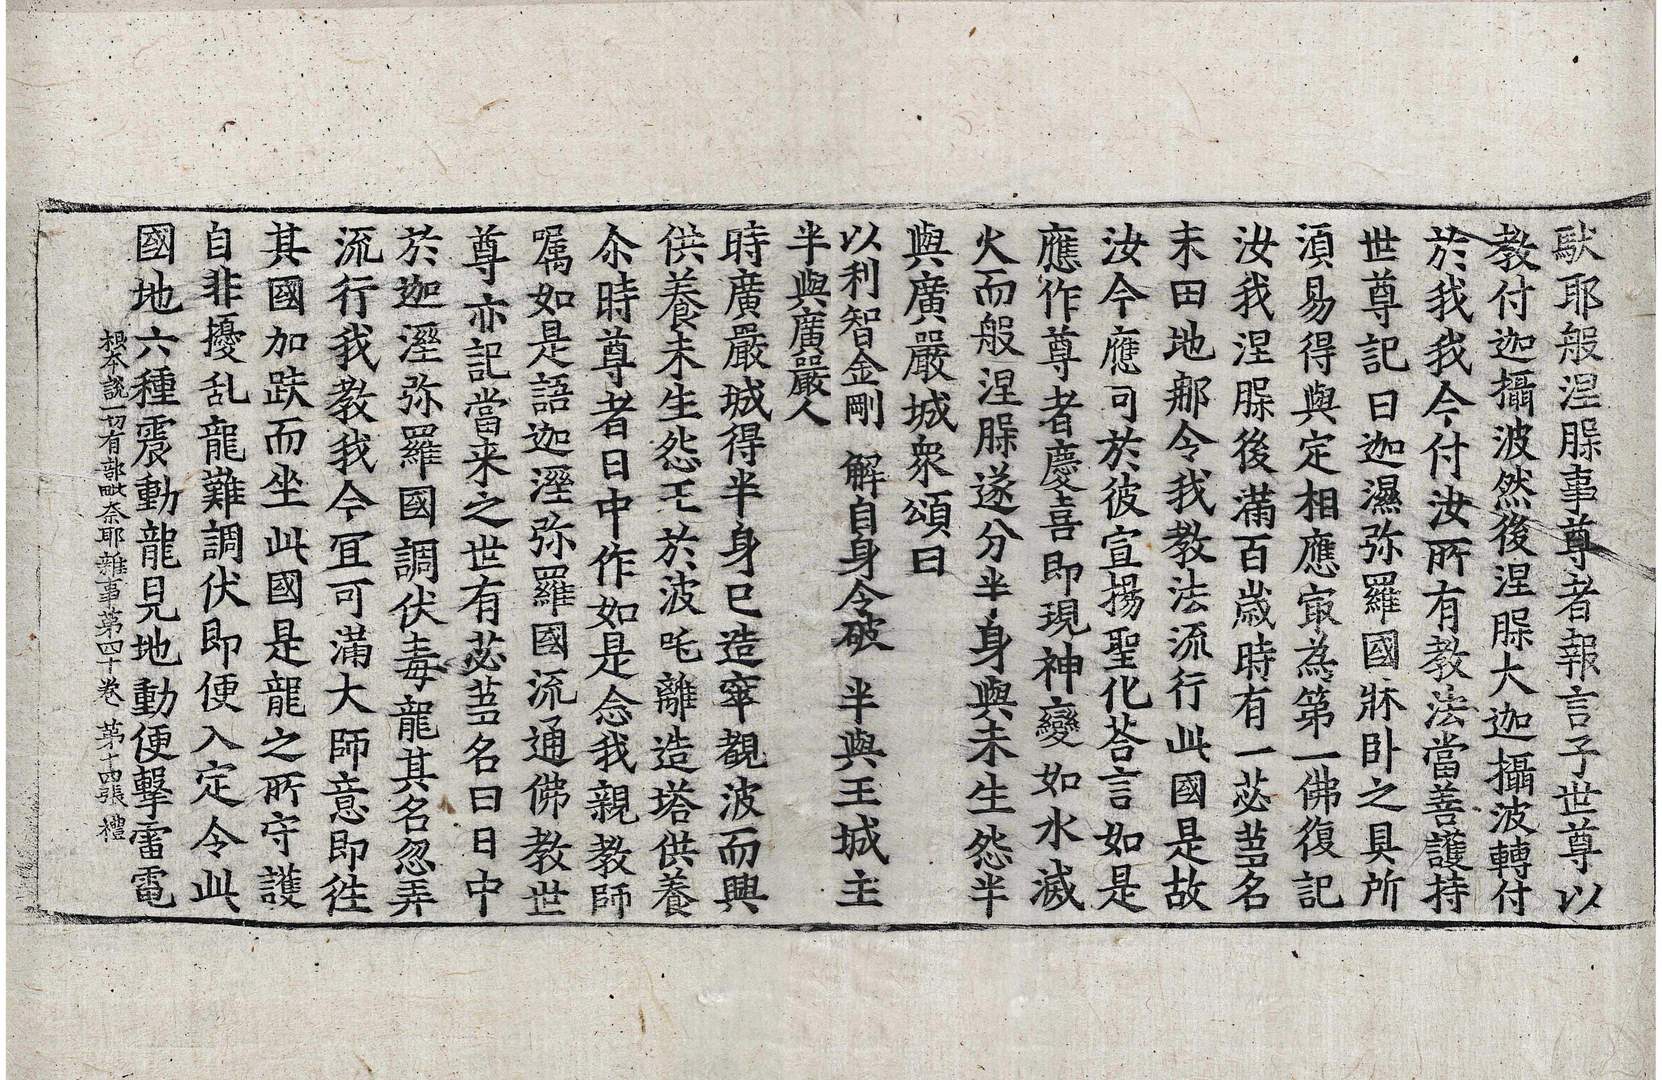 猒耶般涅脲事尊者報言子世尊以
教付迦攝波然後涅脲大迦攝波轉付
於我我今付汝所有教法當善護持
世尊記曰迦濕弥羅國牀卧之具所
湏易得與定相應㝡為第一佛復記
汝我涅脲後滿百歲時有一苾芻名
末田地那令我教法流行此國是故
汝今應可於彼宣揚聖化荅言如是
應作尊者慶喜即現神變如水滅
火而般涅脲遂分半身與未生怨半
與廣嚴城衆頌曰
以利智金剛　解自身令破　半與王城主
半與廣嚴人
時廣嚴城得半身已造窣覩波而興
供養未生怨王於波吒離造塔供養
尒時尊者日中作如是念我親教師
嘱如是語迦溼弥羅國流通佛教世
尊亦記當来之世有苾芻名曰日中
於迦溼弥羅國調伏毒龍其名忽弄
流行我教我今冝可滿大師意即徃
其國加趺而坐此國是龍之所守護
自非擾乱龍難調伏即便入定令此
國地六種震動龍見地動便擊雷電
根本說一切有部毗奈耶雜事第四十卷　第十四張　禮